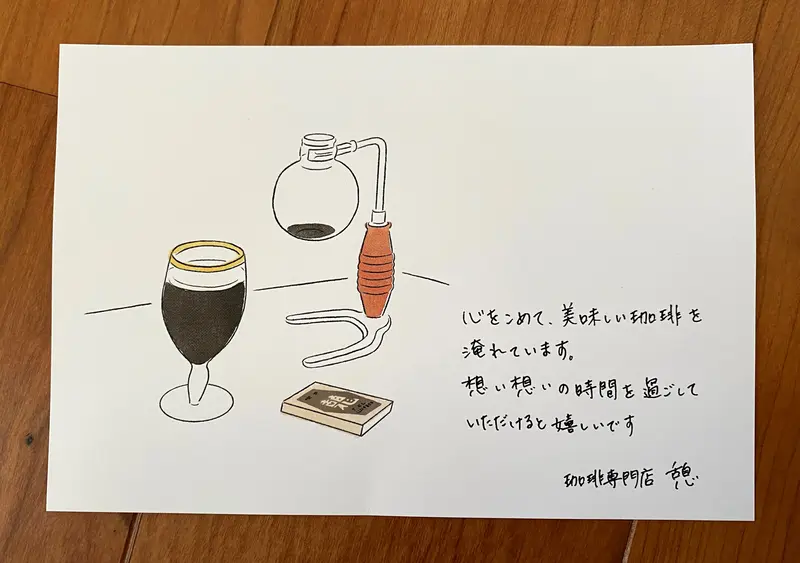 心をこめて、美味しい珈琲を
淹れています。
想い想いの時間を過ごして
いただけると嬉しいです
珈琲専門店 憩
憩